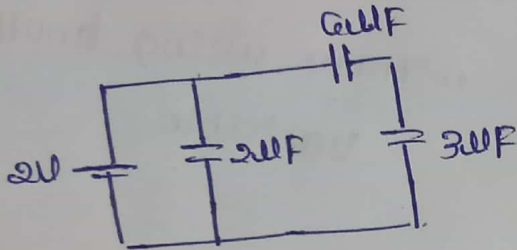 6μF
2V
2μF
3μF